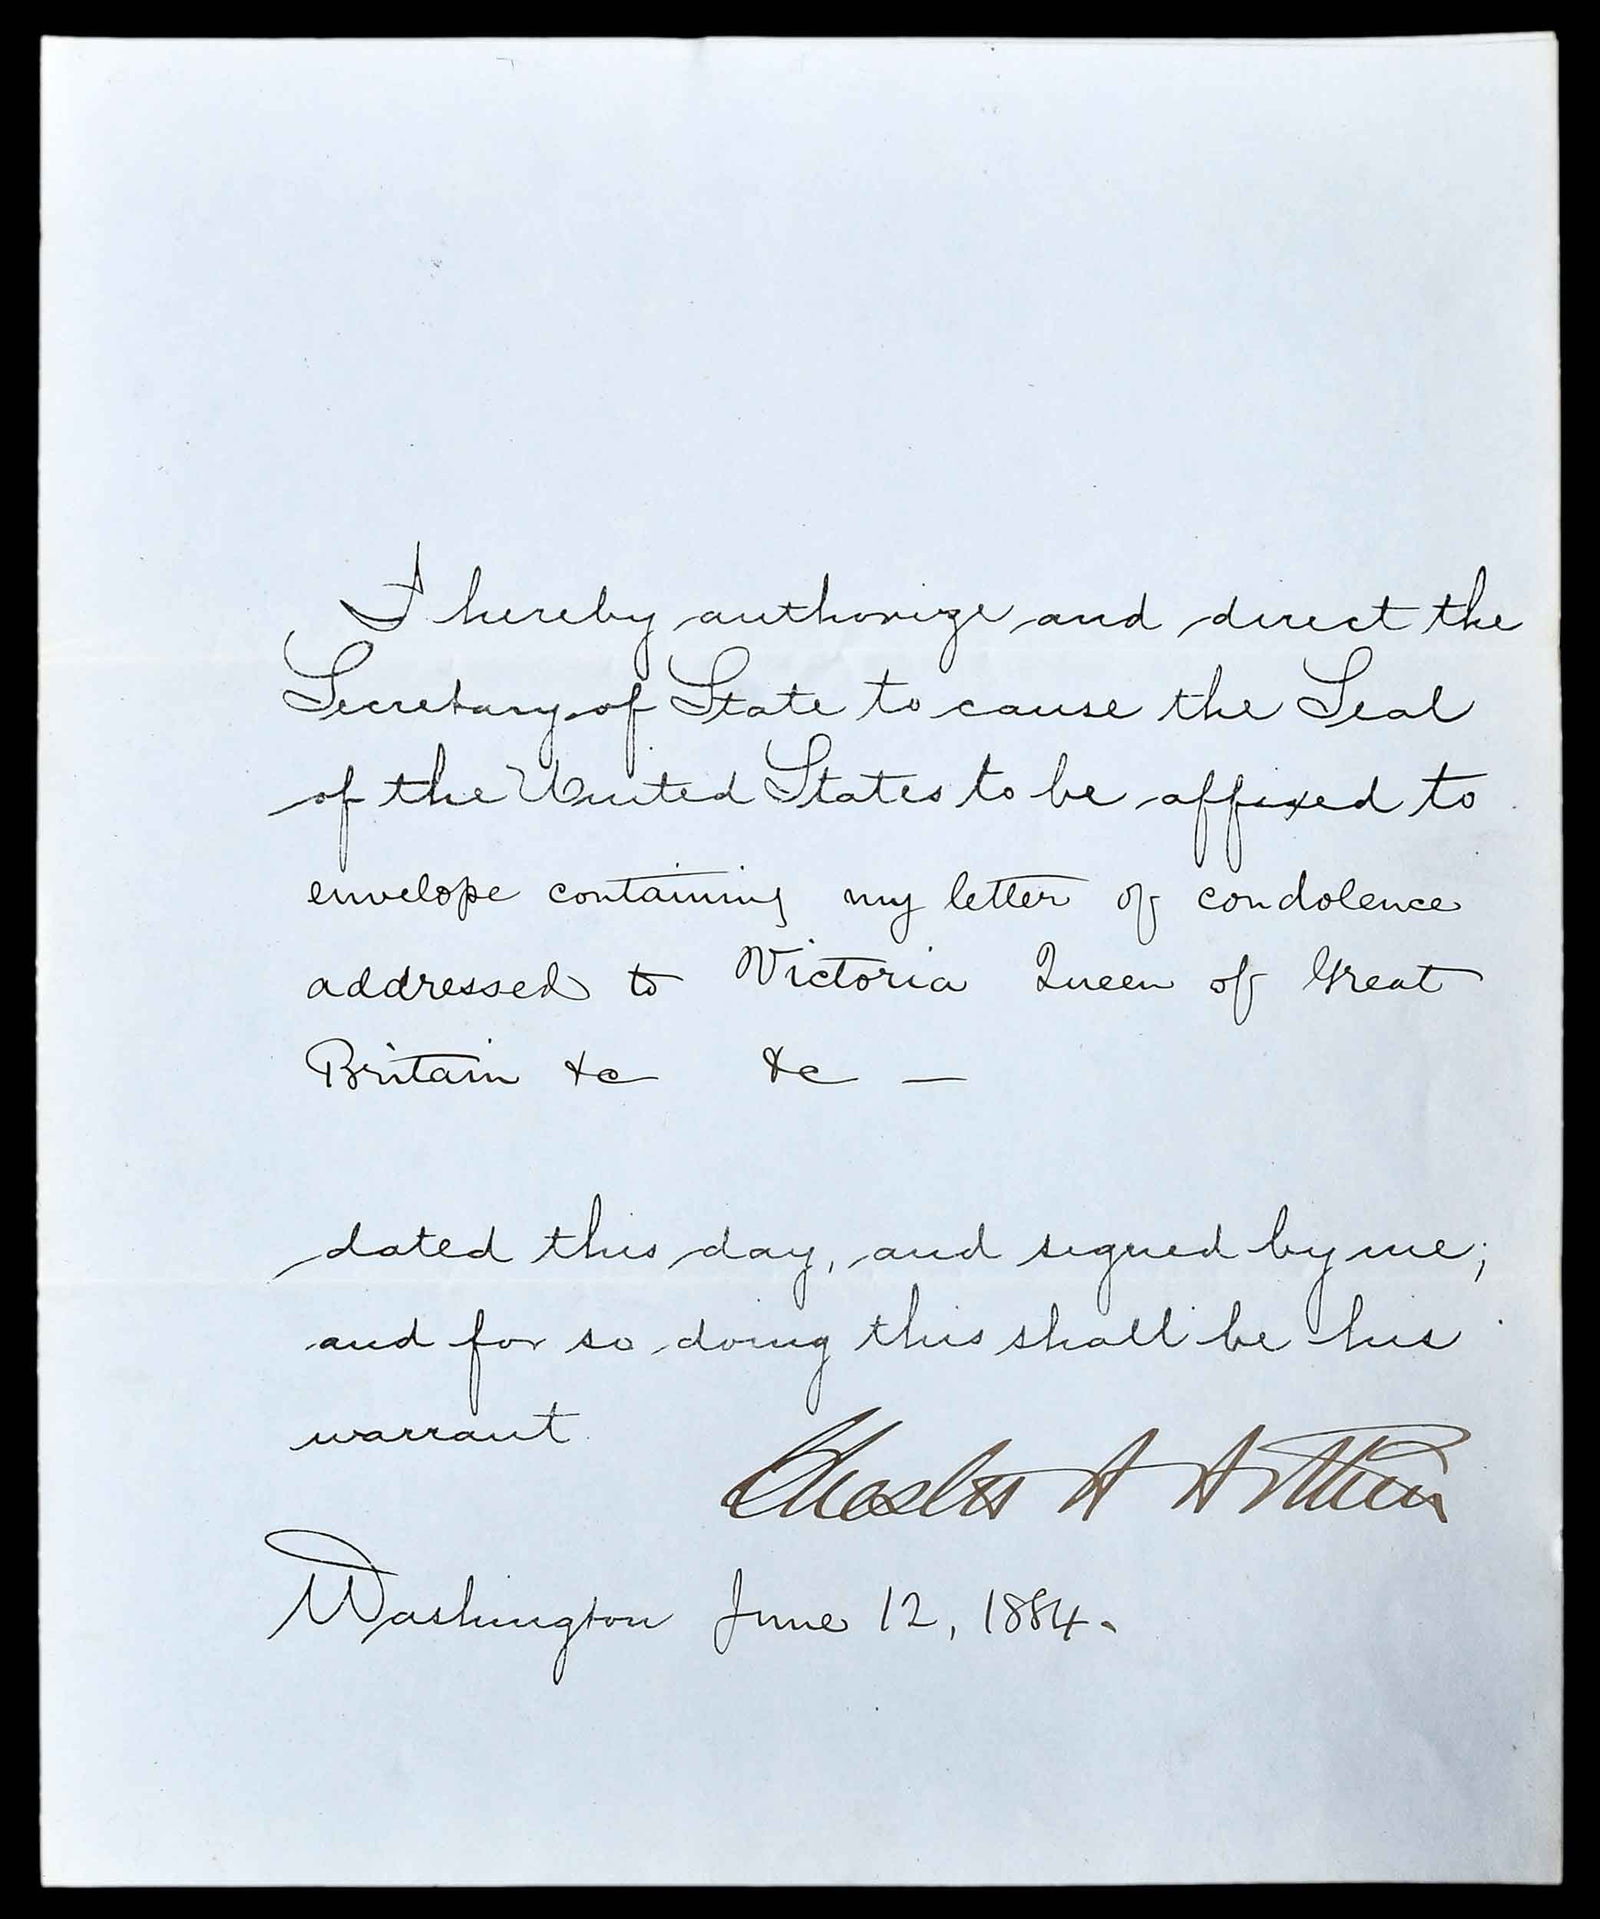 I hereby authorize and direct the
Secretary of State to cause the Seal
of the United States to be affixed to
envelope containing my letter of condolence
addressed to Victoria Queen of Great
Britain &c &c —
dated this day, and signed by me;
and for so doing this shall be his
warrant.
Chester A Arthur
Washington June 12, 1884.